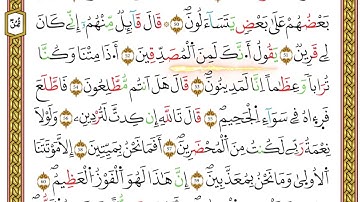 ثُمُن
بَعْضُهُمْ عَلَىٰ بَعْضٍ يَتَسَآءَلُونَ 50 * قَالَ قَآئِلٌ مِّنْهُمُۥٓ إِنِّے كَانَ
لِے قَرِينٌ 51 يَقُولُ أَنَّكَ لَمِنَ ٱلْمُصَدِّقِينَ 52 أَذَا مِتْنَا وَكُنَّا
تُرَاباً وَعِظَٰماً إِنَّا لَمَدِينُونَ 53 قَالَ هَلَ اَنتُم مُّطَّلِعُونَ 54 فَاطَّلَعَ
فَرَءَاهُ فِے سَوَآءِ اِ۬لْجَحِيمِ 55 قَالَ تَاللَّهِ إِن كِدتَّ لَتُرْدِينِ 56 وَلَوْلَا
نِعْمَةُ رَبِّے لَكُنتُ مِنَ ٱلْمُحْضَرِينَ 57 أَفَمَا نَحْنُ بِمَيِّتِينَ 58 إِلَّا مَوْتَتَنَا
اَ۬لُاولَىٰ وَمَا نَحْنُ بِمُعَذَّبِينَ 59 إِنَّ هَٰذَا لَهُوَ ٱلْفَوْزُ ٱلْعَظِيمُ 60